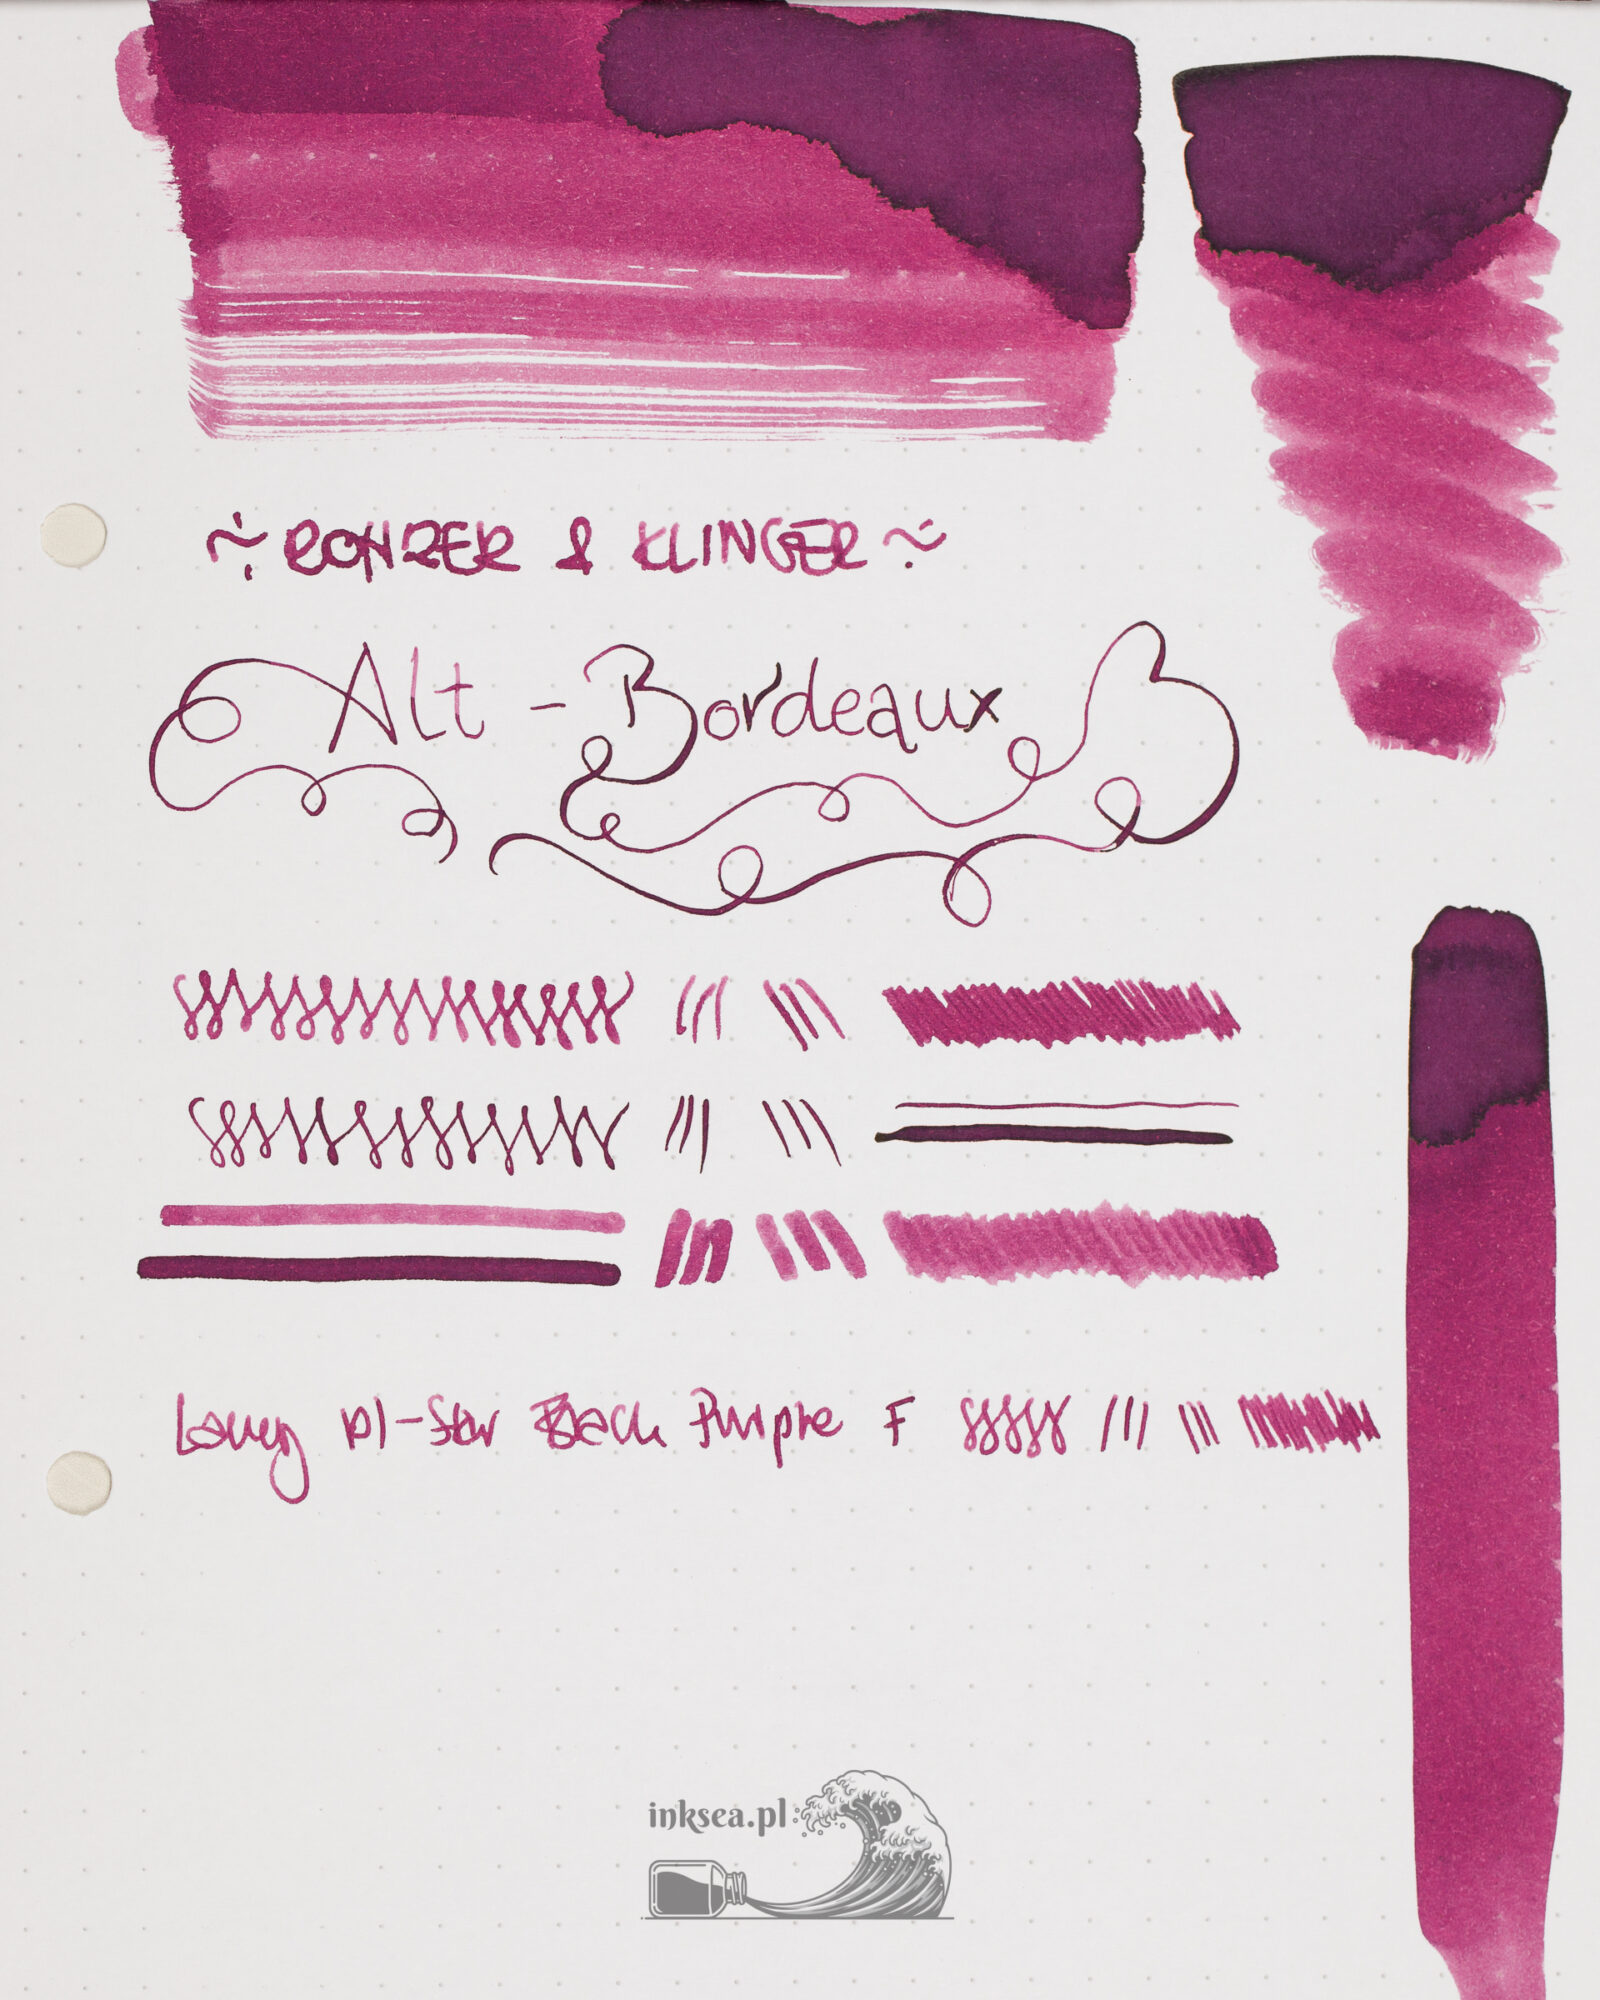 ~ ROHRER & KLINGER ~
Alt - Bordeaux
Lamy Al-Star Black Purple F
inksea.pl